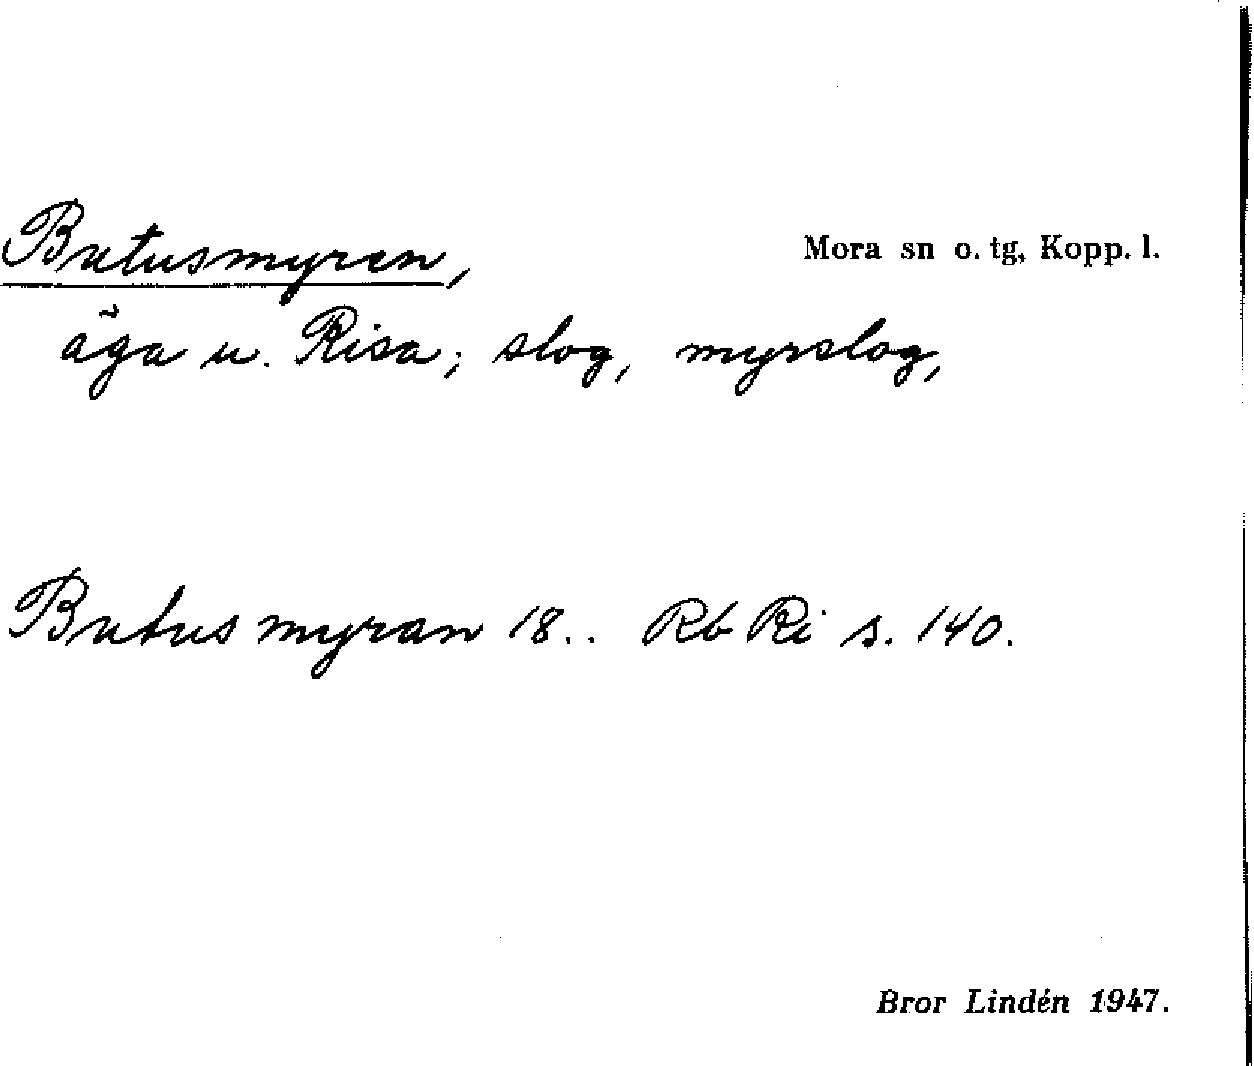 Butusmyren,
Mora sn o. tg, Kopp. l.
äga u. Risa; slog, myrslog,
Butusmyran 18.. Rb Ri s. 140.
Bror Lindén 1947.